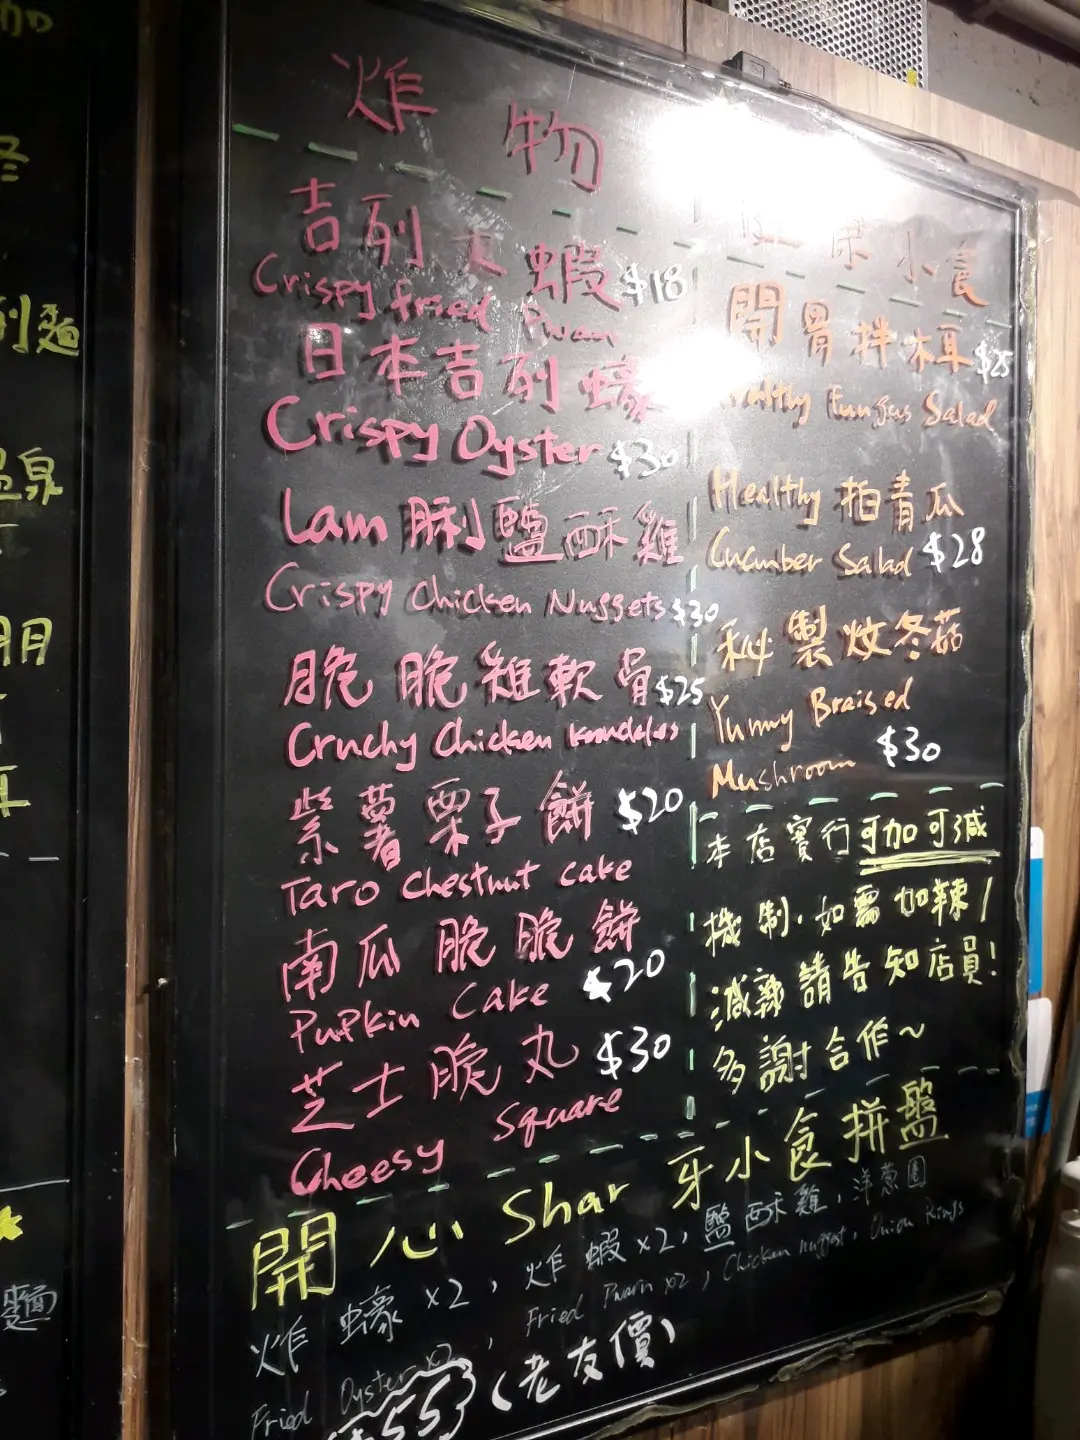 炸物
吉列大蝦 $18
Crispy fried Pwan
日本吉列蠔
Crispy Oyster $30
Lam脷鹽酥雞
Crispy Chicken Nuggets $30
脆脆雞軟骨 $25
Cruchy Chicken
紫薯栗子餅 $20
Taro Chestnut Cake
南瓜脆脆餅
Pupkin Cake $20
芝士脆丸 $30
Cheesy Square
小食
開胃拌木耳 $25
Fungus Salad
Healthy 拍青瓜
Cucumber Salad $28
秘製炆冬菇
Yummy Braised
Mushroom $30
本店實行可加可減
機制.如需加辣/
減辣請告知店員!
多謝合作~
開心Shar牙小食拼盤
炸蠔x2,炸蝦x2,鹽酥雞,洋蔥圈
Fried Oyster x2, Fried Pwarn x2, Chicken nugget, Onion Rings
$55 (老友價)
加
冬
麵
溫泉
月
麵